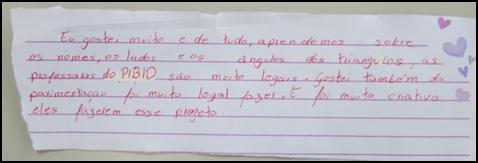 Eu gostei muito e de tudo, aprendemos sobre
os nomes, os lados e os ângulos dos triangulos, as
professoras do PIBID são muito legais. Gostei também da
pavimentação foi muito legal fazer. E foi muito criativo
eles fazelem esse projeto.